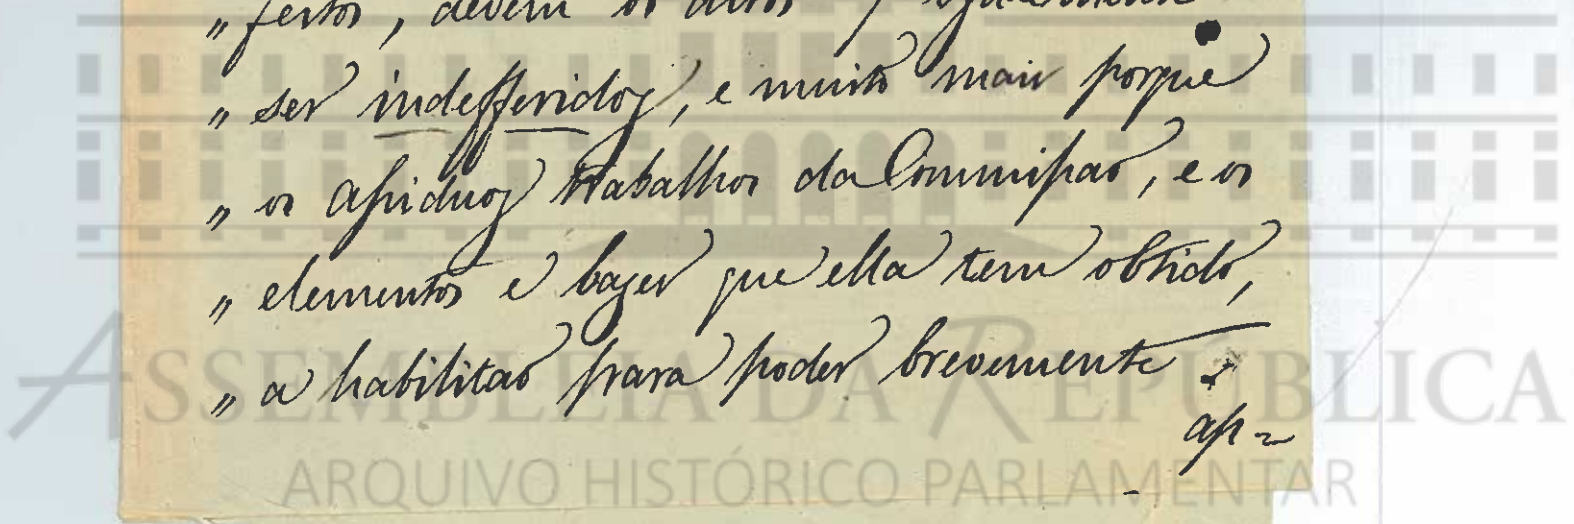 „ festos, devem os ditos
„ ser indefferidos, e muito mais porque
„ os assiduos trabalhos da Commissaõ, e os
„ elementos e bazes que ella tem obtido,
„ a habilitaõ para poder brevemente
ap=
ASSEMBLEIA DA REPÚBLICA
ARQUIVO HISTÓRICO PARLAMENTAR